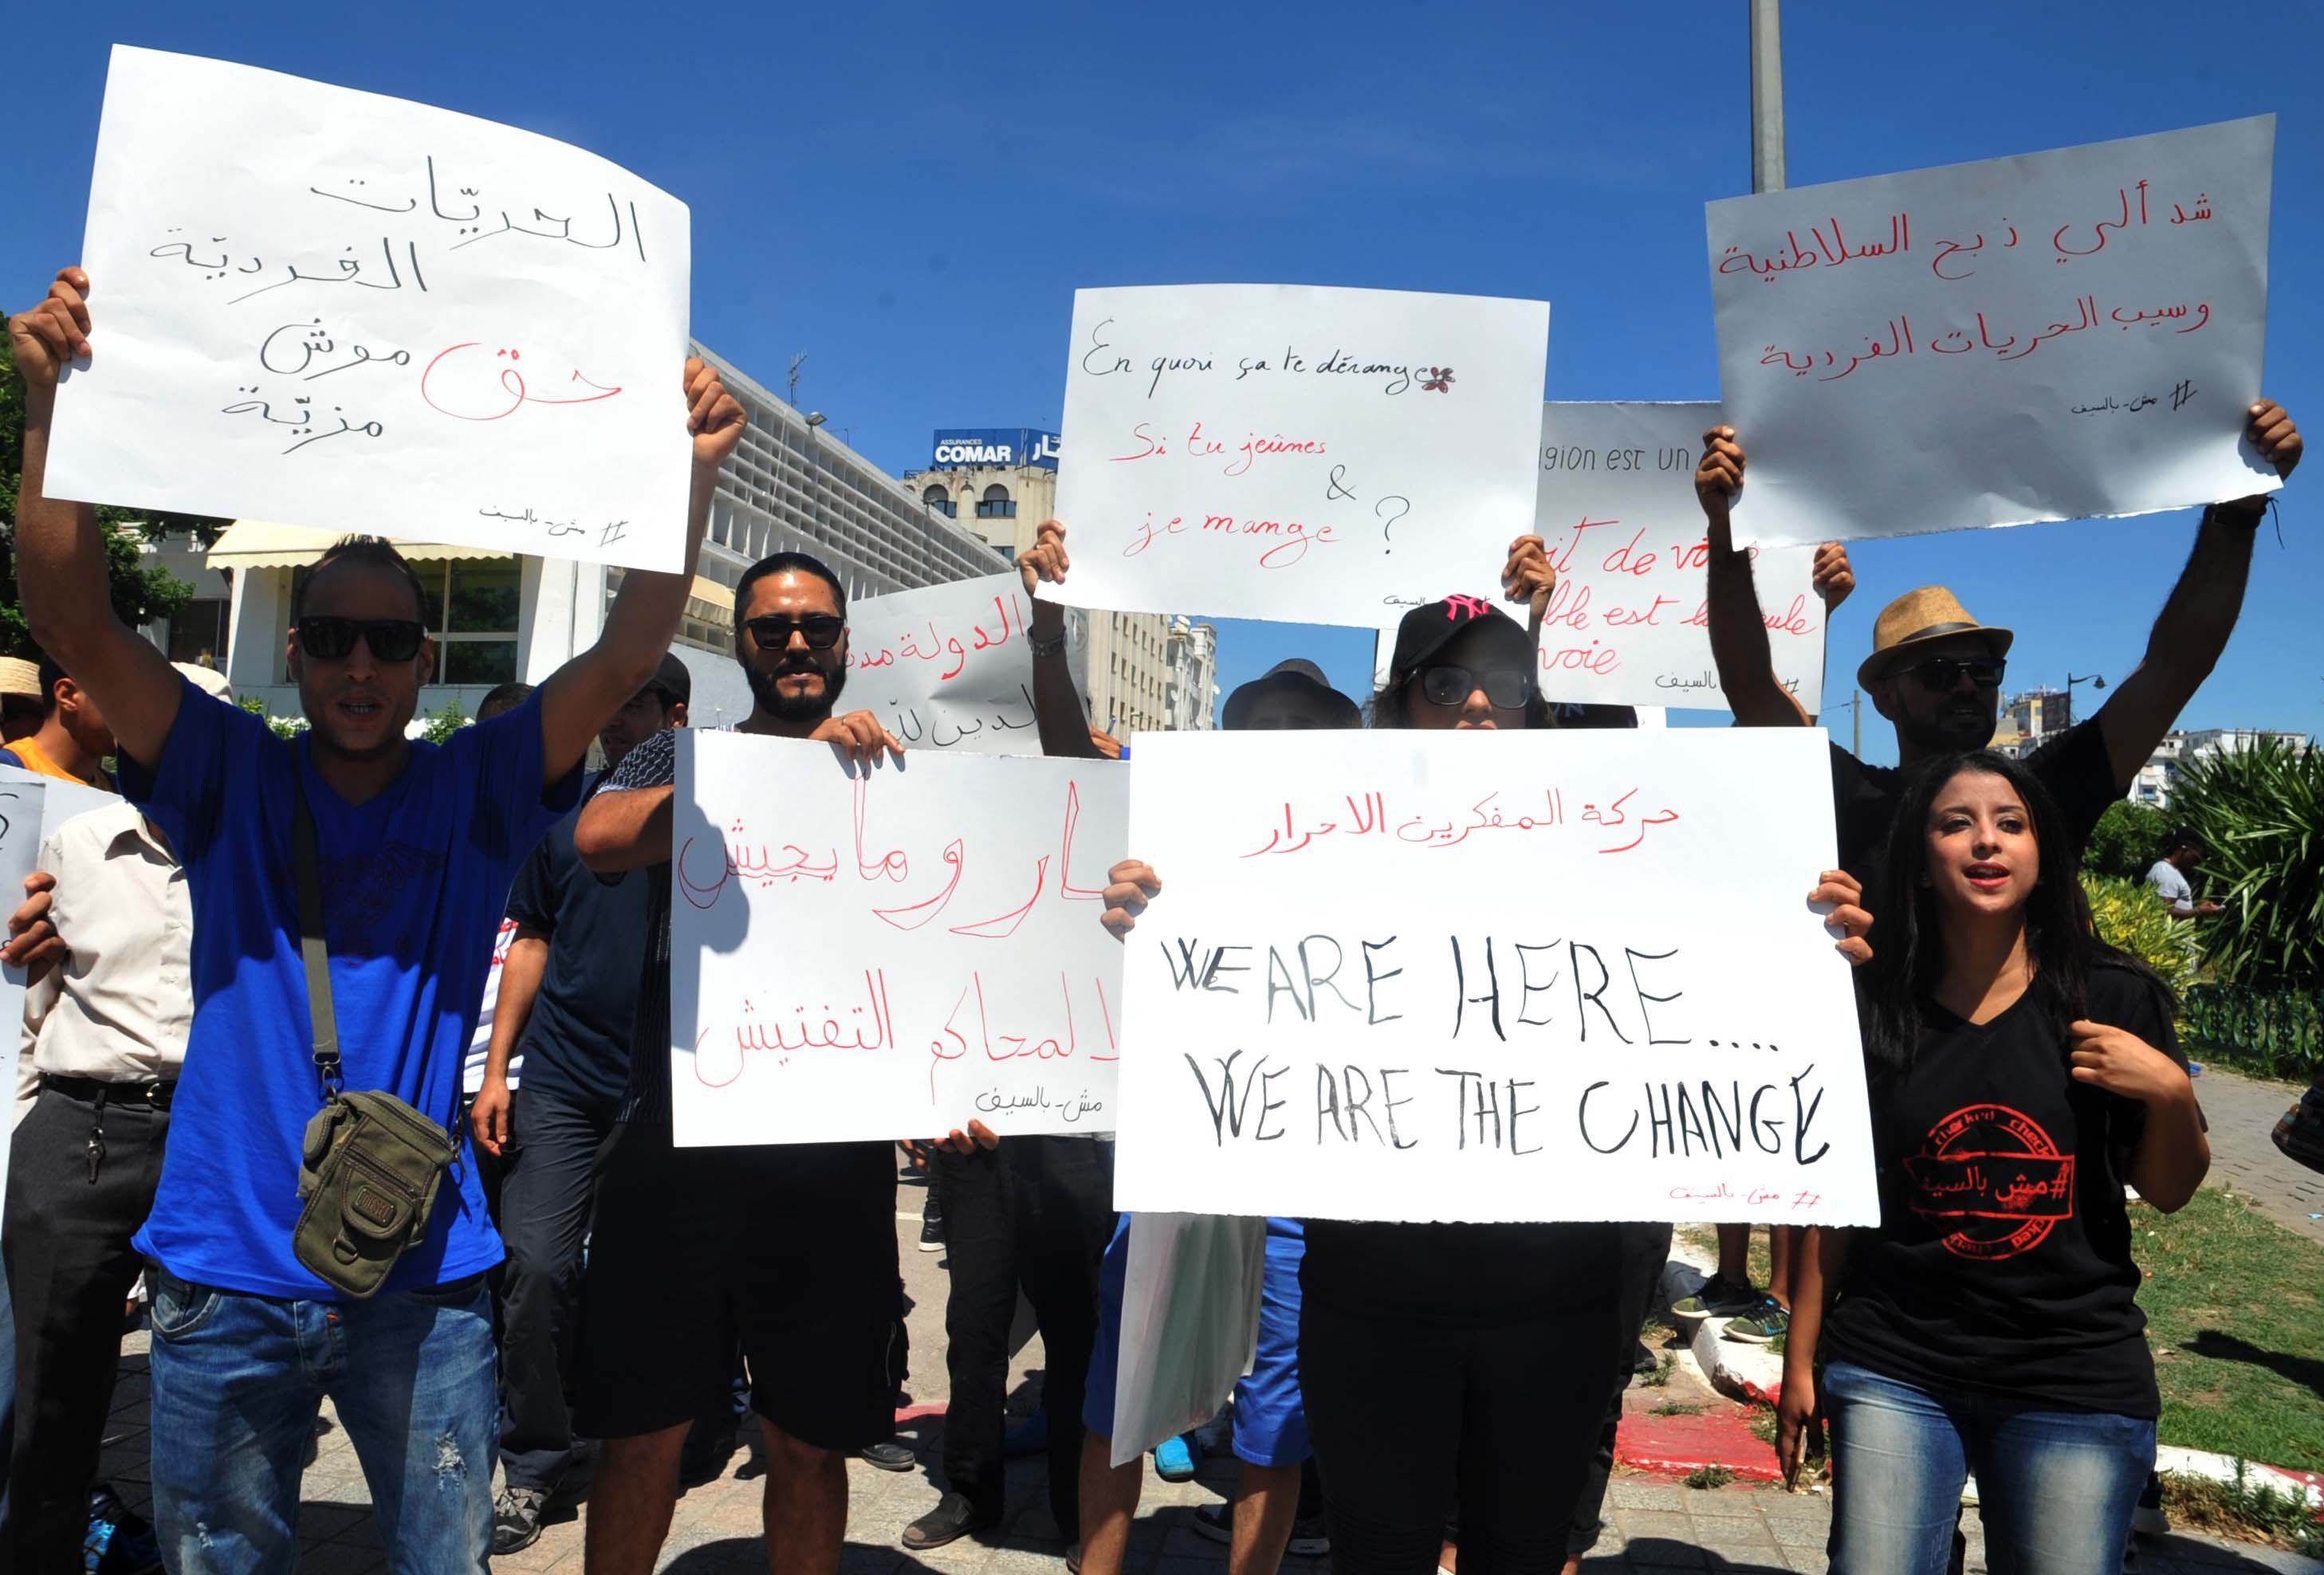 الحريّات
الفرديّة
حق موش
مزيّة
# مش-بالسيف
ASSURANCES
COMAR
En quoi ça te dérange
Si tu jeûnes
&
je mange ?
igion est un
it de
ble est la seule
voie
بالسيف #
شد ألي ذبح السلاطنية
وسيب الحريات الفردية
# مش-بالسيف
الدولة
الدين للّه
ار وما يجيش
لا لمحاكم التفتيش
مش-بالسيف
حركة المفكرين الاحرار
WE ARE HERE....
WE ARE THE CHANGE
# مش-بالسيف
#مش بالسيف
DIESEL